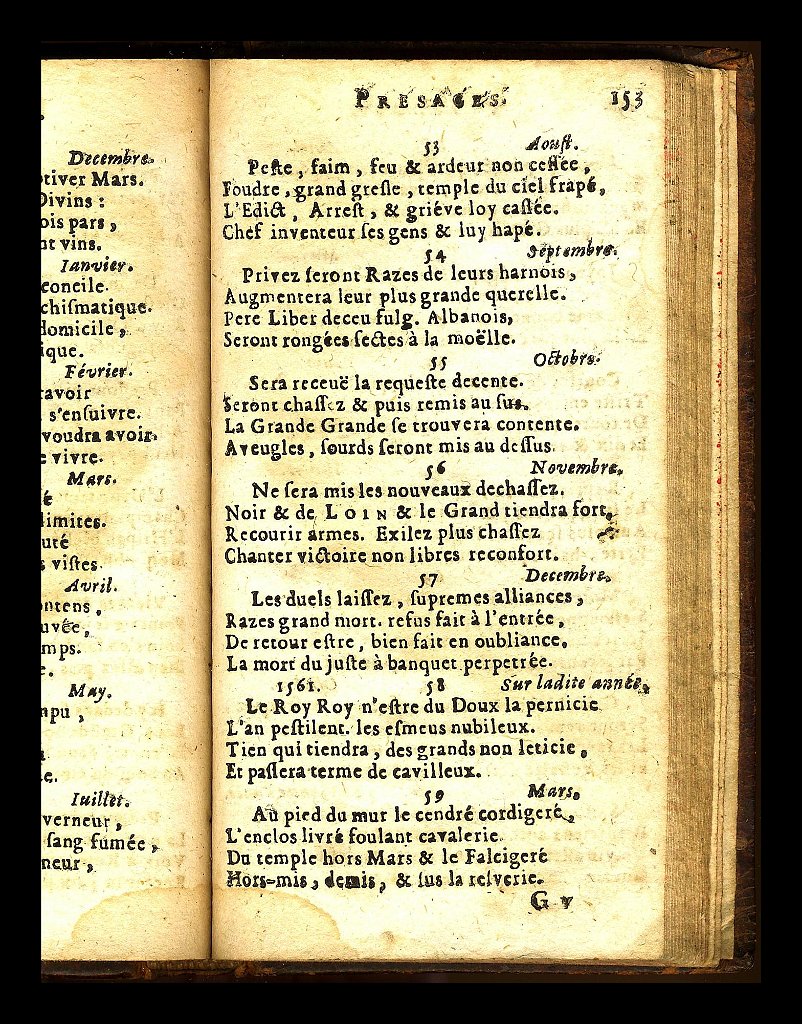 Decembre.
tiver Mars.
Divins :
ois pars,
nt vins.
Ianvier.
concile.
chiſmatique.
domicile,
ique.
Février.
avoir
s'enſuivre.
voudra avoir.
vivre.
Mars.
limites.
uté
viſtes.
Avril.
ntens,
uvée,
mps.
e.
May.
mpu,
e.
Iuillet.
verneur,
ſang fumée,
neur,
PRESAGES. 153
53 Aouſt.
Peſte, faim, feu & ardeur non ceſſée,
Foudre, grand greſle, temple du ciel frapé,
L'Edict, Arreſt, & griéve loy caſſée.
Chef inventeur ſes gens & luy hapé.
54 Septembre.
Privez ſeront Razes de leurs harnois,
Augmentera leur plus grande querelle.
Pere Liber deceu fulg. Albanois,
Seront rongées ſectes à la moëlle.
55 Octobre.
Sera receuë la requeſte decente.
Seront chaſſez & puis remis au ſus.
La Grande Grande ſe trouvera contente.
Aveugles, ſourds ſeront mis au deſſus.
56 Novembre.
Ne ſera mis les nouveaux dechaſſez.
Noir & de LOIN & le Grand tiendra fort,
Recourir armes. Exilez plus chaſſez
Chanter victoire non libres reconfort.
57 Decembre.
Les duels laiſſez, ſupremes alliances,
Razes grand mort. refus fait à l'entrée,
De retour eſtre, bien fait en oubliance,
La mort du juſte à banquet perpetrée.
1561. 58 Sur ladite année.
Le Roy Roy n'eſtre du Doux la pernicie
L'an peſtilent. les eſmeus nubileux.
Tien qui tiendra, des grands non leticie,
Et paſſera terme de cavilleux.
59 Mars.
Au pied du mur le cendré cordigeré,
L'enclos livré foulant cavalerie.
Du temple hors Mars & le Falcigeré
Hors-mis, demis, & ſus la reſverie.
G v